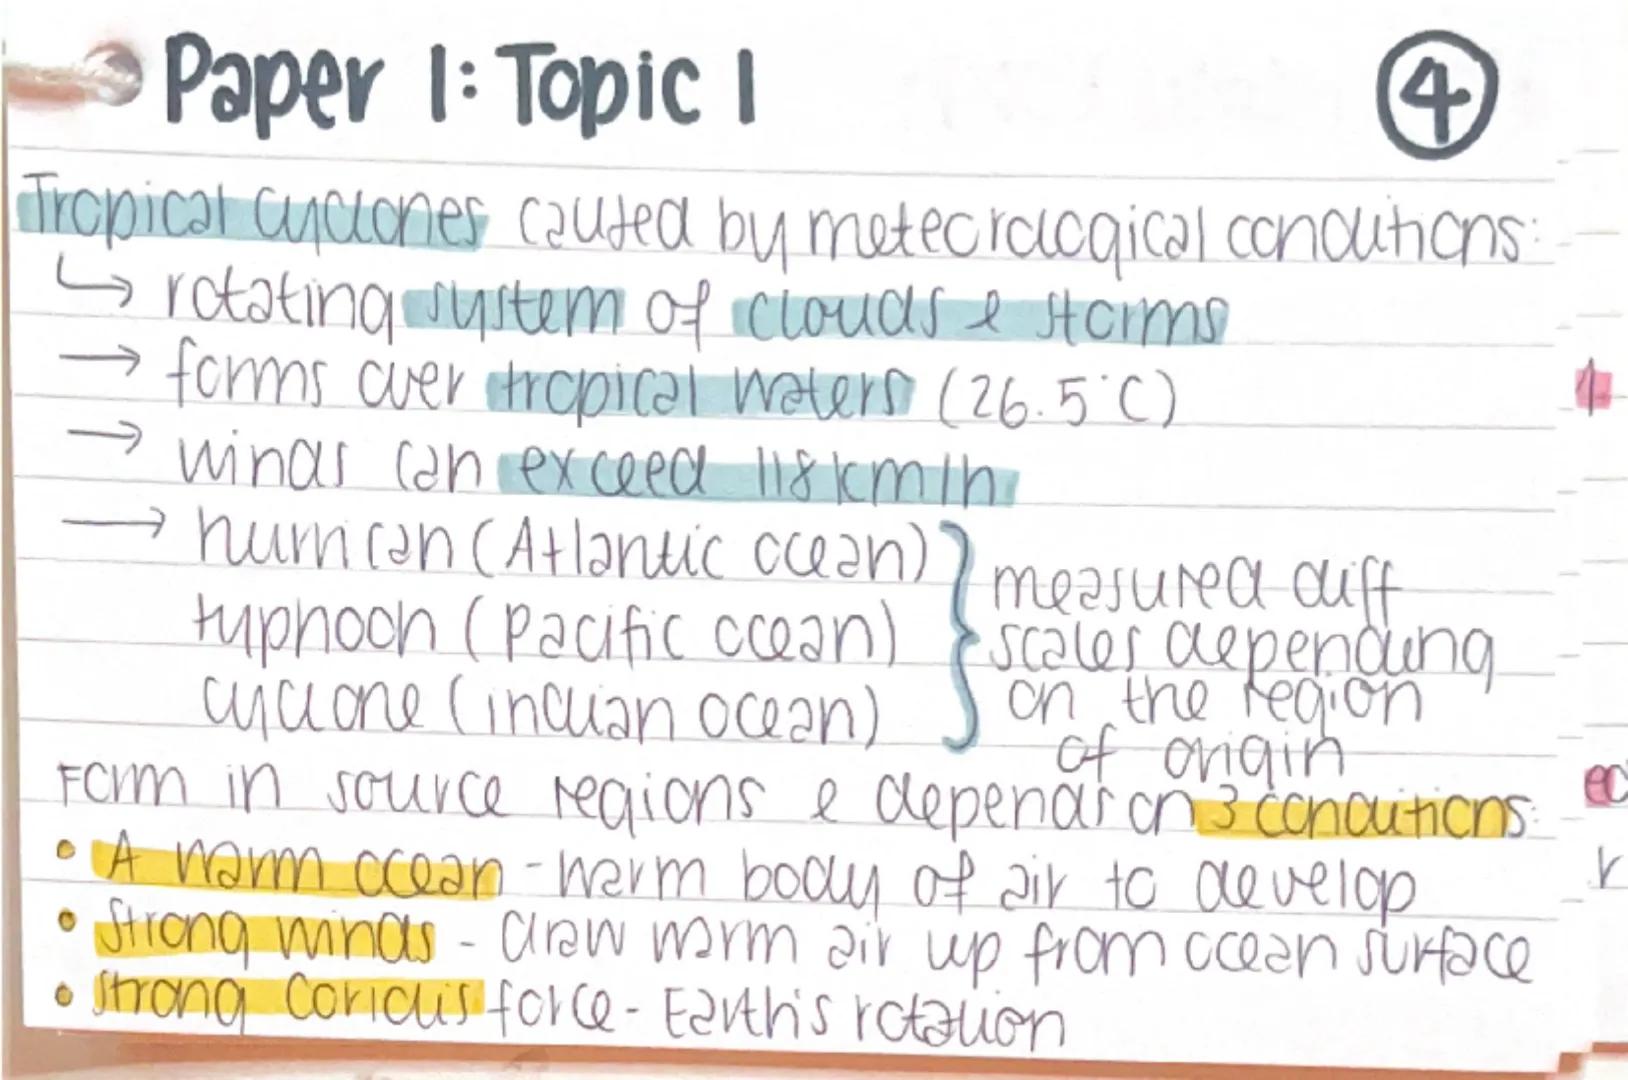 Paper 1: Topic 1
④
Tropical cyclones caused by meteorological conditions:
↳ rotating system of clouds & storms
→ forms over tropical waters (26.5°C)
→ winds can exceed 118km/h
→ hurrican (Atlantic ocean)
typhoon (Pacific ocean)
cyclone (indian ocean)
} measured diff
scales depending
on the region
of origin
Form in source regions & depends on 3 conditions:
• A warm ocean - warm body of air to develop
• Strong winds - draw warm air up from ocean surface
• Strong Coriolis force - Earth's rotation